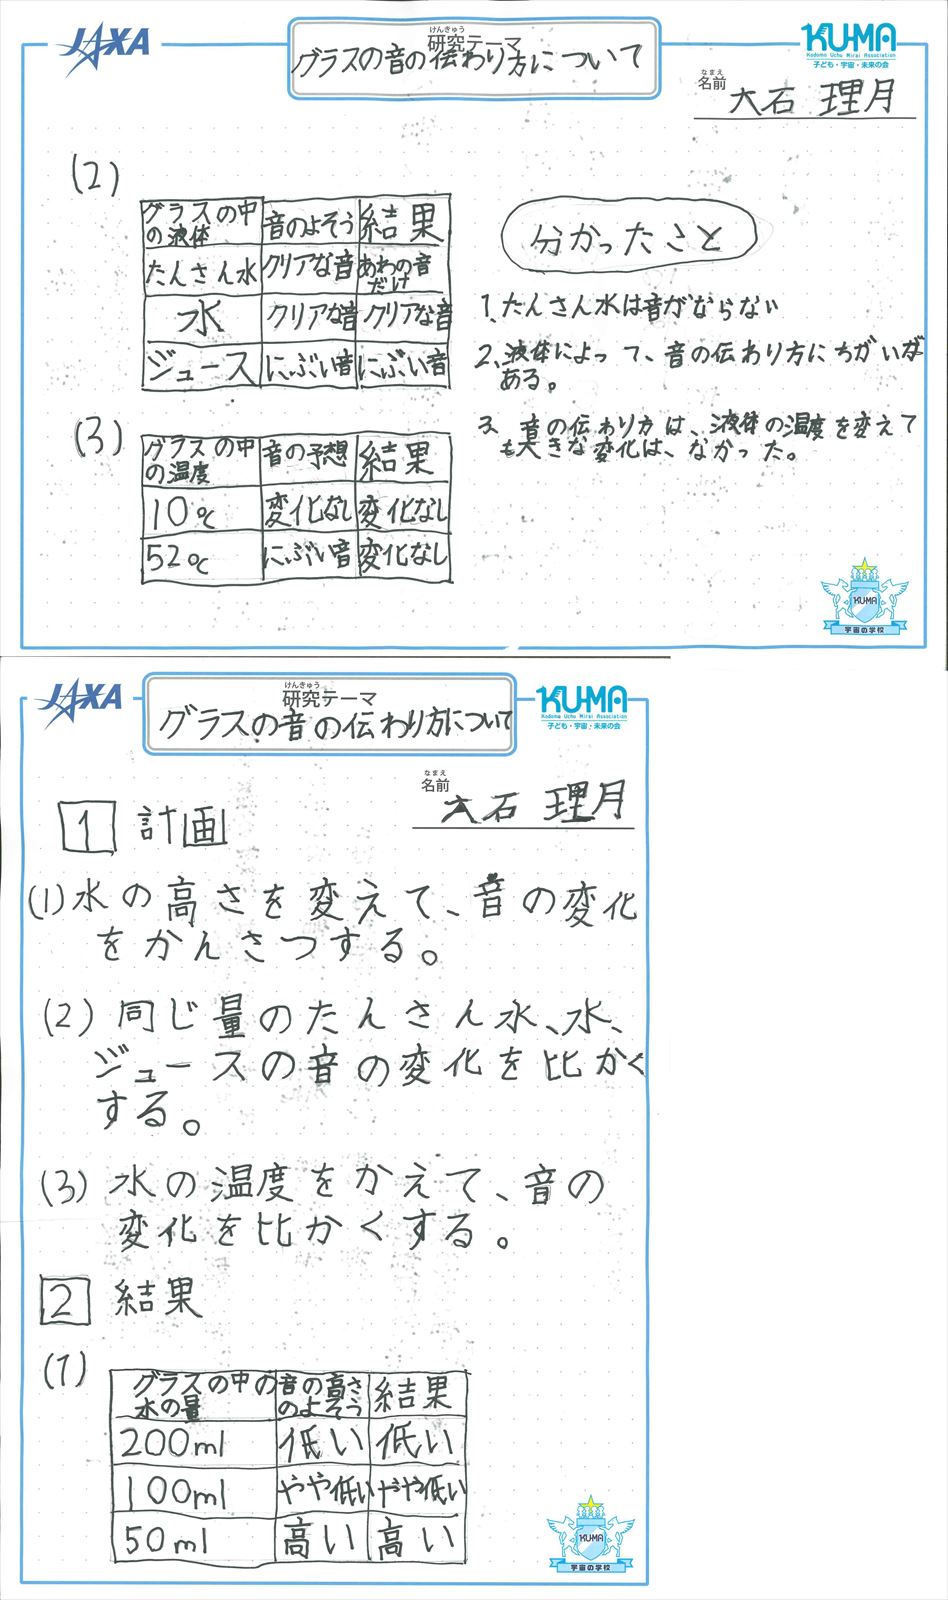 JAXA
けんきゅう
研究テーマ
グラスの音の伝わり方について
KU-MA
Kodomo Uchu Mirai Association
子ども・宇宙・未来の会
なまえ
名前
大石 理月
(2)
グラスの中の液体 音のよそう 結果
たんさん水 クリアな音 あわの音だけ
水 クリアな音 クリアな音
ジュース にぶい音 にぶい音
(3)
グラスの中の温度 音の予想 結果
10℃ 変化なし 変化なし
52℃ にぶい音 変化なし
分かったこと
1、たんさん水は音がならない
2、液体によって、音の伝わり方にちがいが
ある。
3、音の伝わり方は、液体の温度を変えて
も大きな変化は、なかった。
KUMA
宇宙の学校
JAXA
けんきゅう
研究テーマ
グラスの音の伝わり方について
KU-MA
Kodomo Uchu Mirai Association
子ども・宇宙・未来の会
なまえ
名前
大石 理月
1 計画
(1)水の高さを変えて、音の変化
をかんさつする。
(2)同じ量のたんさん水、水、
ジュースの音の変化を比かく
する。
(3)水の温度をかえて、音の
変化を比かくする。
2 結果
(1)
グラスの中の水の量 音の高さのよそう 結果
200ml 低い 低い
100ml やや低い やや低い
50ml 高い 高い
KUMA
宇宙の学校